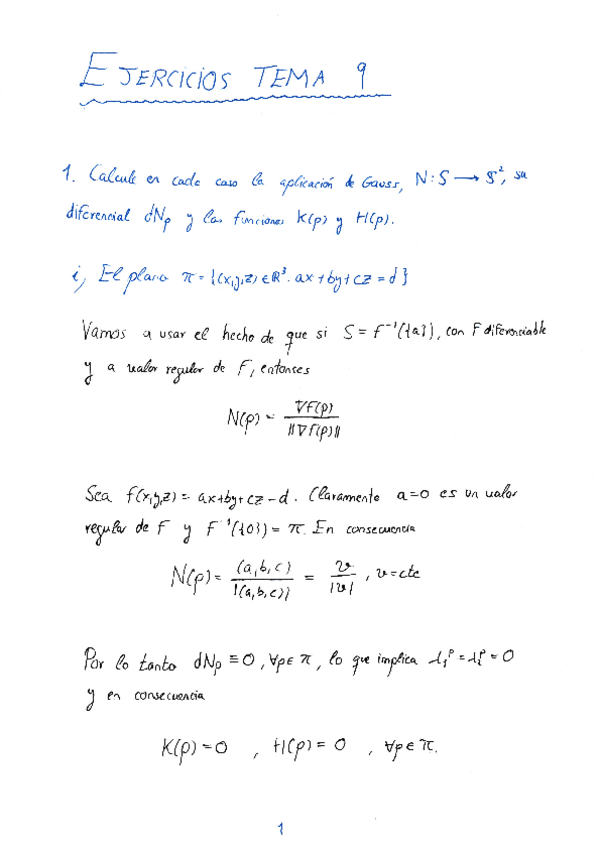 EJERCICIOS TEMA 9
1. Calcule en cada caso la aplicación de Gauss, N: S → S², su
diferencial dNp y las funciones K(p) y H(p).
i) El plano π = {(x,y,z) ∈ ℝ³. ax + by + cz = d}
Vamos a usar el hecho de que si S = f⁻¹({a}), con F diferenciable
y a valor regular de F, entonces
N(p) = ∇F(p) / ||∇f(p)||
Sea f(x,y,z) = ax+by+cz-d. Claramente a=0 es un valor
regular de F y F⁻¹({0}) = π. En consecuencia
N(p) = (a,b,c) / |(a,b,c)| = v / |v| , v=cte
Por lo tanto dNp ≡ 0, ∀p∈ π, lo que implica λ₁ᵖ = λ₂ᵖ = 0
y en consecuencia
K(p) = 0 , H(p) = 0 , ∀p ∈ π.
1